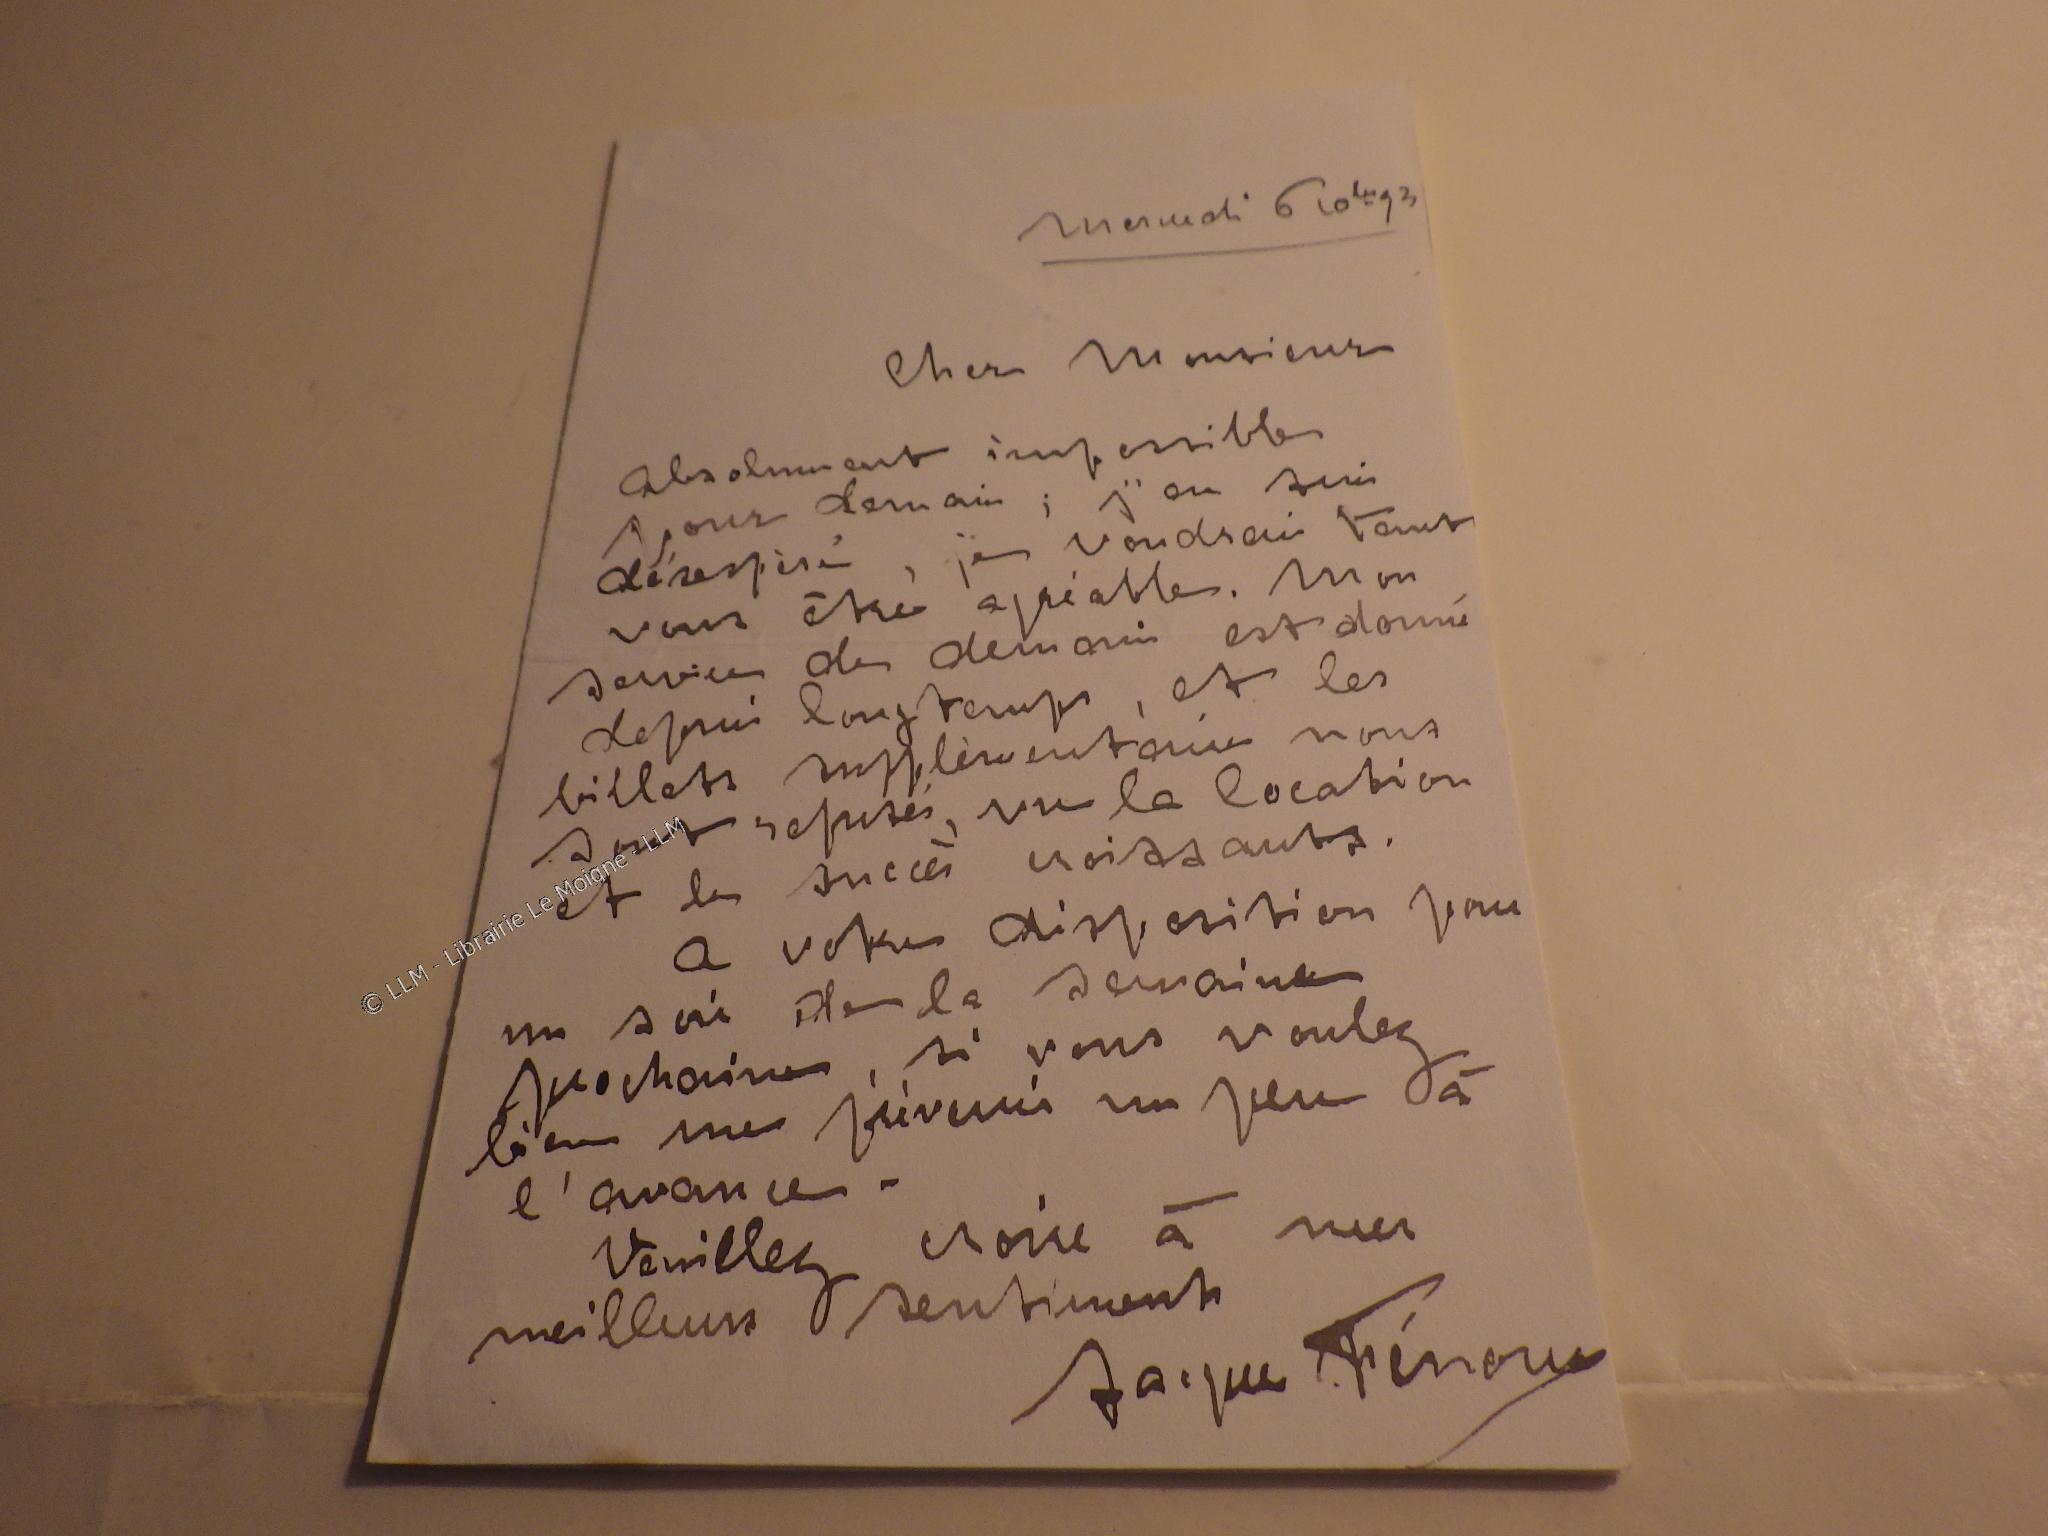 Mercredi 6 10bre 93
Cher Monsieur
Absolument impossible
pour demain ; j'en suis
désespéré, je voudrais tant
vous être agréable. Mon
service de demain est donné
depuis longtemps, et les
billets supplémentaires nous
sont refusés, vu la location
et le succès croissants.
A votre disposition pour
un soir de la semaine
prochaine, si vous voulez
bien me prévenir un peu à
l'avance -
Veuillez croire à mes
meilleurs sentiments
Jacques
© LLM - Librairie Le Moigne - LLM